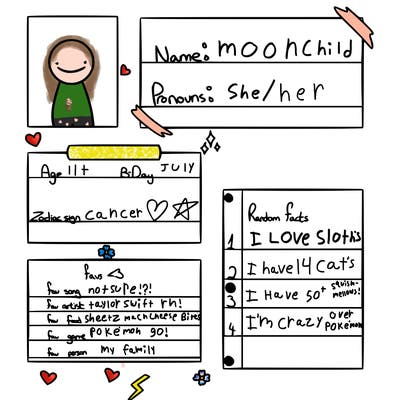 Name: moonchild
Pronouns: she/her
Age 11+ BDay JULY
Zodiac sign cancer
favs
fav song not sure!?!
fav artist taylor swift rn!
fav food sheetz mac n cheese Bites
fav game POKémon go!
fav person my family
Random facts
1 I LOVE Sloths
2 I have 14 Cat's
3 I Have 50+ squish-mellows!
4 I'm crazy over Pokémon